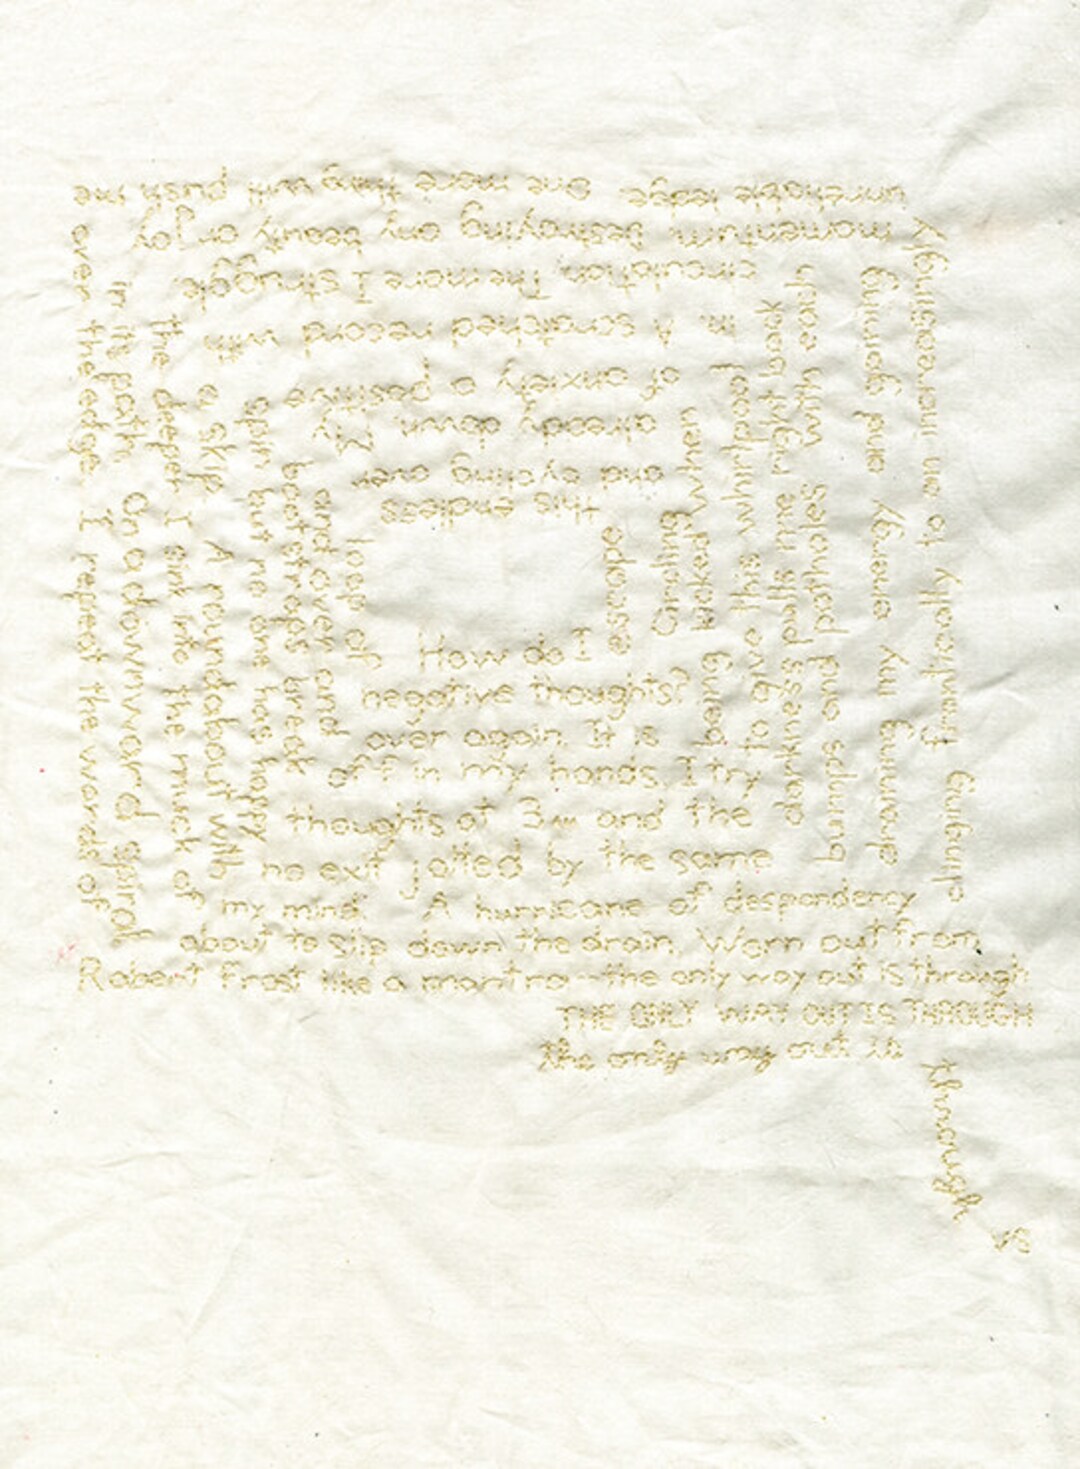 How do I
escape
this endless
loop of
negative thoughts?
Circling
and cycling over
and over and
over again. It is
being kicked when
already down. My
boot straps break
off in my hands. I try
to give this whirlpool
of anxiety a positive
spin but no one has happy
thoughts at 3am and the
darkness pulls me right back
in. A scratched record with
a skip. A roundabout with
no exit jolted by the same
bumps and potholes with each
circulation. The more I struggle
the deeper I sink into the muck of
my mind. A hurricane of despondency
draining my energy and gaining
momentum. Destroying any beauty or joy
in its path. On a downward spiral
about to slip down the drain. Worn out from
clinging futilely to an increasingly
untenable ledge. One more thing will push me
over the edge. I repeat the words of
Robert Frost like a mantra—the only way out is through
THE ONLY WAY OUT IS THROUGH
the only way out is
through